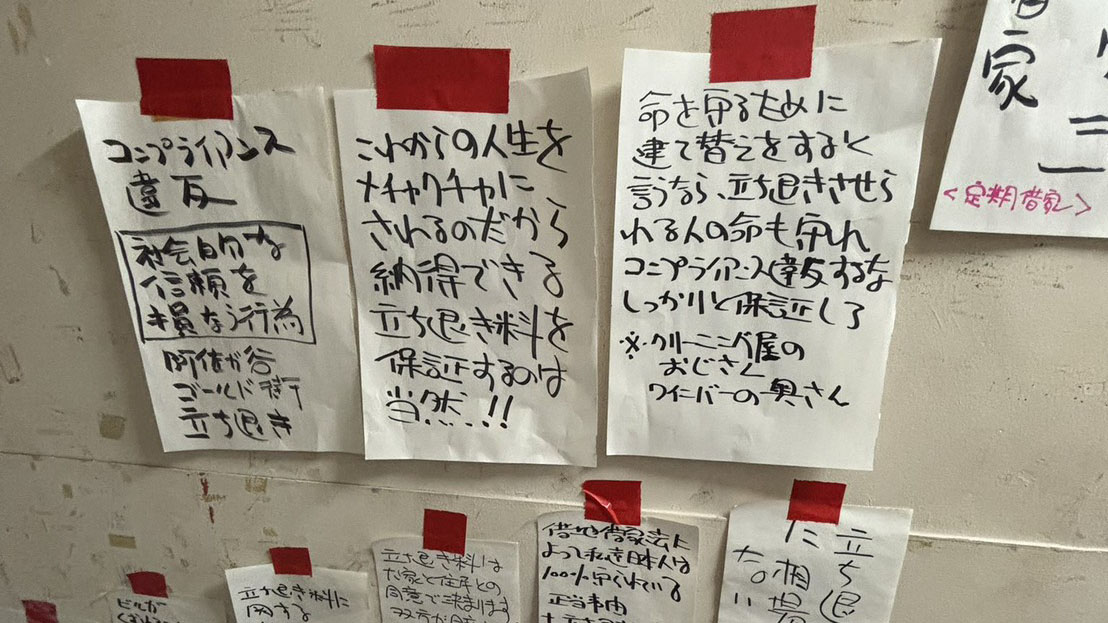 コンプライアンス
違反
社会的な
信頼を
損なう行為
阿佐ヶ谷
ゴールド街
立ち退き
これからの人生を
メチャクチャに
されるのだから
納得できる
立ち退き料を
保証するのは
当然!!
命を守るために
建て替えをすると
言うなら、立ち退きさせら
れる人の命も守れ
コンプライアンス違反するな
しっかりと保証しろ
※クリーニング屋の
おじさん
ワインバーの奥さん
家
<定期借家>
ビルが
立ち退き料に
関する
立ち退き料は
大家と住民との
同意で決まります
双方が
借地借家法に
よって私達日本人は
100%守られている
正当事由
立ち退
相場